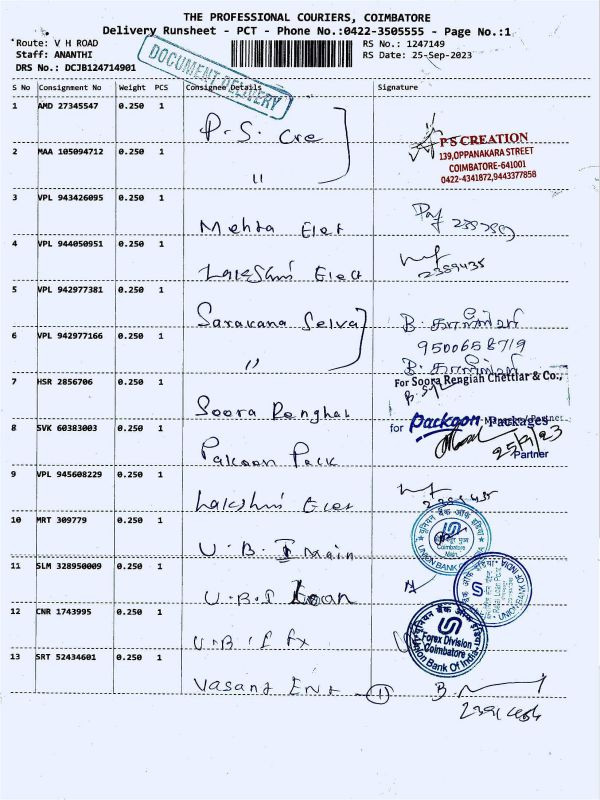 THE PROFESSIONAL COURIERS, COIMBATORE
Delivery Runsheet - PCT - Phone No.:0422-3505555 - Page No.:1
Route: V H ROAD RS No.: 1247149
Staff: ANANTHI RS Date: 25-Sep-2023
DRS No.: DCJB124714901
DOCUMENT DELIVERY
S No Consignment No Weight PCS Consignee Details Signature
1 AMD 27345547 0.250 1 P.S. Cre
P S CREATION
139,OPPANAKARA STREET
COIMBATORE-641001
0422-4341872,9443377858
2 MAA 105094712 0.250 1 "
3 VPL 943426095 0.250 1 Mehta Elet
4 VPL 944050951 0.250 1 Lakshmi Elect
2359435
5 VPL 942977381 0.250 1 Saravana Selva
B.
9500658719
6 VPL 942977166 0.250 1 "
B.
7 HSR 2856706 0.250 1 Soora Renghai
For Soora Rengiah Chettiar & Co.,
Partner
8 SVK 60383003 0.250 1 Pakoon Pack
for Packoon Packages
25/9/23
Partner
9 VPL 945608229 0.250 1 Lakshmi Elet
10 MRT 309779 0.250 1 U.B.I Main
यूनियन बैंक ऑफ इंडिया
Coimbatore
Main
UNION BANK
11 SLM 328950009 0.250 1 U.B.I Loan
UNION BANK OF INDIA
12 CNR 1743995 0.250 1 U.B.I Fx
यूनियन बैंक ऑफ इंडिया
Forex Division
Coimbatore
Union Bank Of India
13 SRT 52434601 0.250 1 Vasant Ent - 1 B